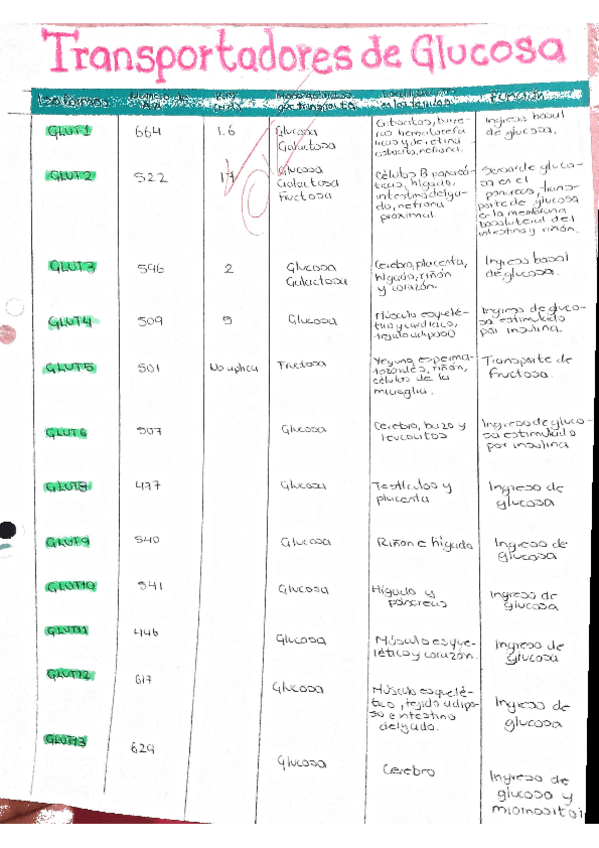 Transportadores de Glucosa
Isoformas Número de en las células Función
GLUT1 664 1.6 Glucosa Galactosa
Ingreso basal de glucosa.
GLUT2 522 17 Glucosa Galactosa Fructosa
Células B pancreáticas, hígado, intestino delgado, nefrona proximal.
Sensor de glucosa en el páncreas, transporte de glucosa en la membrana basolateral del intestino y riñón.
GLUT3 596 2 Glucosa Galactosa
Cerebro, placenta, hígado, riñón y corazón.
Ingreso basal de glucosa.
GLUT4 509 5 Glucosa
Músculo esquelético y cardiaco, tejido adiposo
Ingreso de glucosa estimulado por insulina.
GLUT5 501 No aplica Fructosa
Yeyuno, espermatozoides, riñón, células de la
Transporte de Fructosa.
GLUT6 507 Glucosa
Cerebro, bazo y leucocitos
Ingreso de glucosa estimulado por insulina.
GLUT8 477 Glucosa
Testículos y placenta
Ingreso de glucosa
GLUT9 540 Glucosa
Riñon e hígado
Ingreso de glucosa
GLUT10 541 Glucosa
Hígado y páncreas
Ingreso de glucosa
GLUT11 446 Glucosa
Músculo esquelético y corazón.
Ingreso de glucosa
GLUT12 617 Glucosa
Músculo esquelético, tejido adiposo e intestino delgado.
Ingreso de glucosa
GLUT13 629 Glucosa
Cerebro
Ingreso de glucosa y